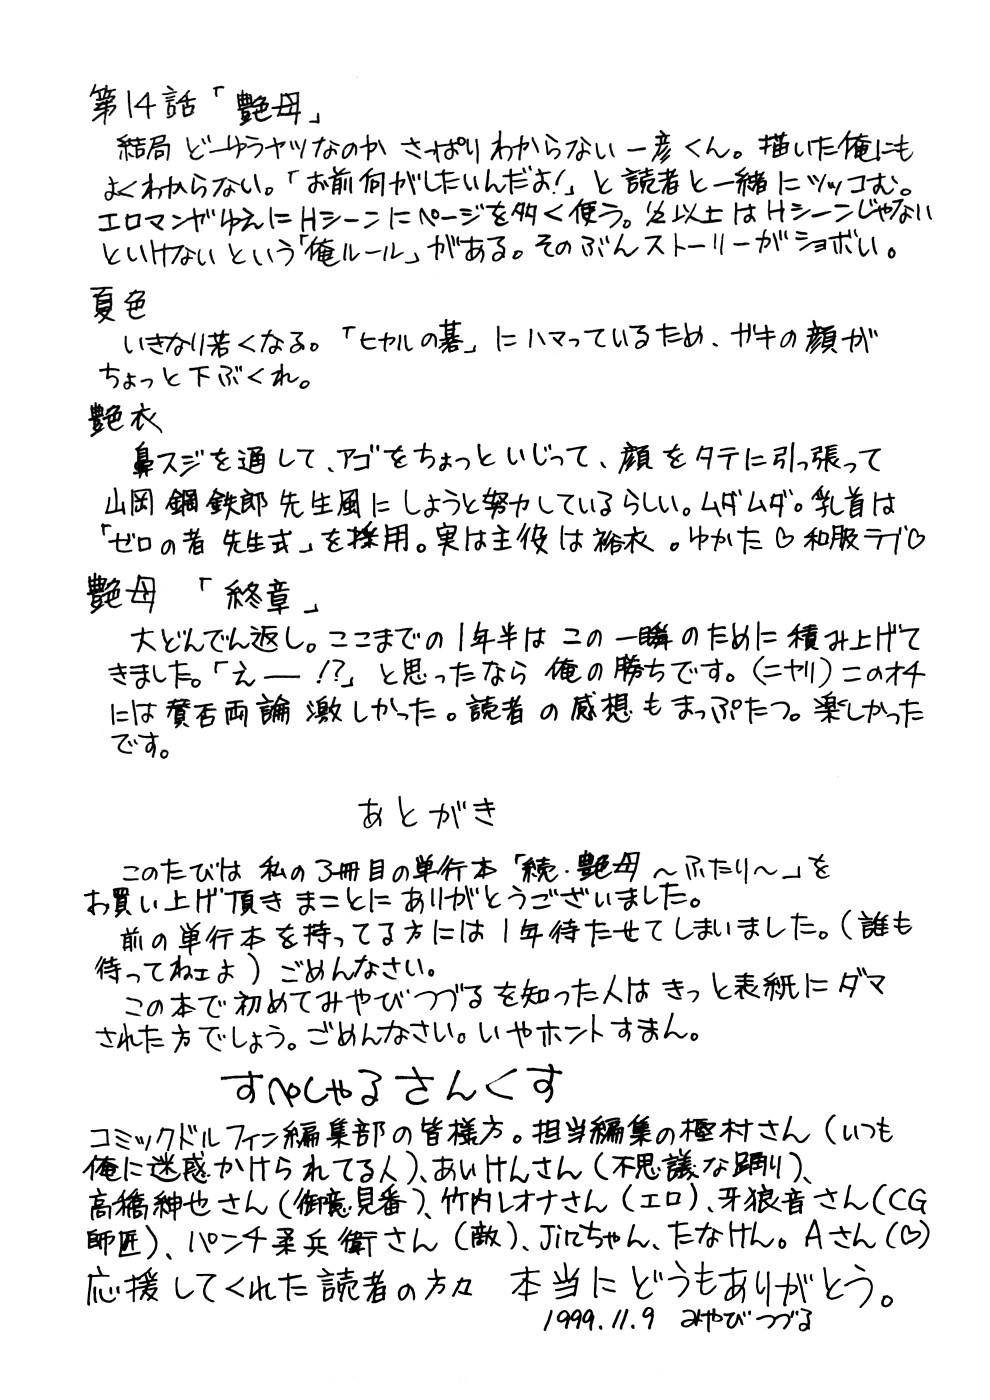 第14話「艶母」
結局どーゆうヤツなのかさっぱりわからない一彦くん。描いた俺にも
よくわからない。「お前何がしたいんだよ!」と読者と一緒にツッコむ。
エロマンガゆえにHシーンにページを多く使う。½以上はHシーンじゃない
といけないという「俺ルール」がある。そのぶんストーリーがショボい。
夏色
いきなり若くなる。「ヒカルの碁」にハマっているため、ガキの顔が
ちょっと下ぶくれ。
艶衣
鼻スジを通して、アゴをちょっといじって、顔をタテに引っ張って
山岡鋼鉄郎先生風にしようと努力しているらしい。ムダムダ。乳首は
「ゼロの者先生式」を採用。実は主役は裕衣。ゆかた♡和服ラブ♡
艶母「終章」
大どんでん返し。ここまでの1年半はこの一瞬のために積み上げて
きました。「えー!?」と思ったなら俺の勝ちです。(ニヤリ)このオチ
には賛否両論激しかった。読者の感想もまっぷたつ。楽しかった
です。
あとがき
このたびは私の3冊目の単行本「続・艶母~ふたり~」を
お買い上げ頂きまことにありがとうございました。
前の単行本を持ってる方には1年待たせてしまいました。(誰も
待ってねェよ)ごめんなさい。
この本で初めてみやびつづるを知った人はきっと表紙にダマ
された方でしょう。ごめんなさい。いやホントすまん。
すぺしゃるさんくす
コミックドルフィン編集部の皆様方。担当編集の極村さん(いつも
俺に迷惑かけられてる人)、あいけんさん(不思議な踊り)、
高橋紳也さん(御意見番)、竹内レオナさん(エロ)、牙狼音さん(CG
師匠)、パンチ柔兵衛さん(敵)、Jinちゃん、たなけん。Aさん(♡)
応援してくれた読者の方々 本当にどうもありがとう。
1999.11.9 みやびつづる